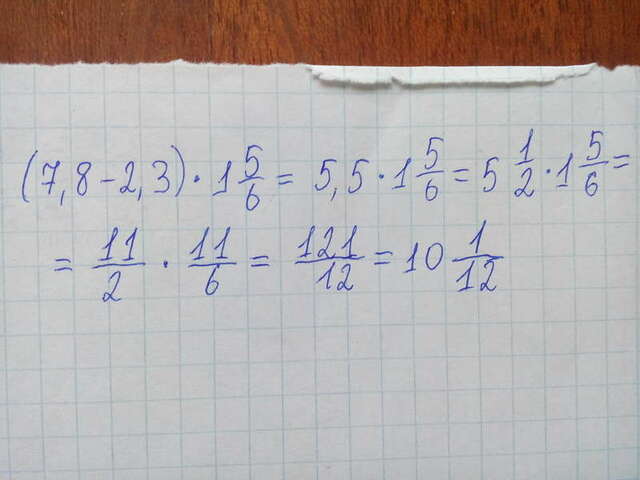 (7,8-2,3)·1 5/6 = 5,5·1 5/6 = 5 1/2·1 5/6 =
= 11/2 · 11/6 = 121/12 = 10 1/12